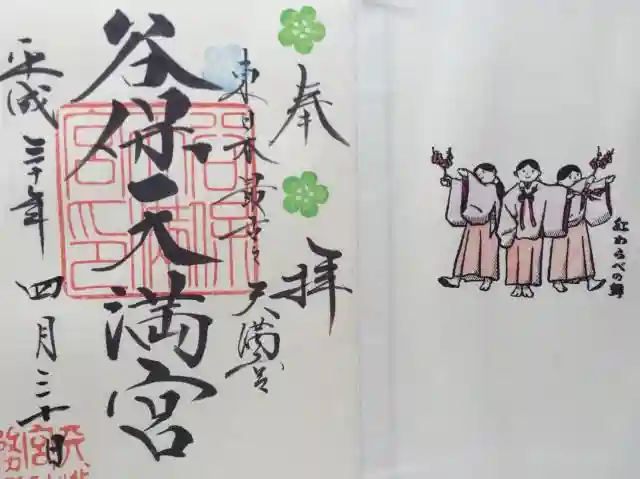 奉拝
東日本最古之天満宮
谷保天満宮
平成三十年四月三十日
紅わらべの舞